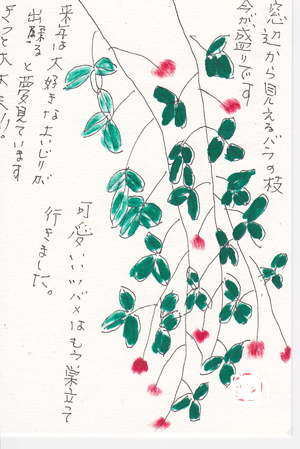 窓辺から見えるバラの枝
今が盛りです
可愛いいツバメはもう巣立て
行きました。
来年は大好きな土いじりが
出来ると夢見ています
きっと大丈夫!!